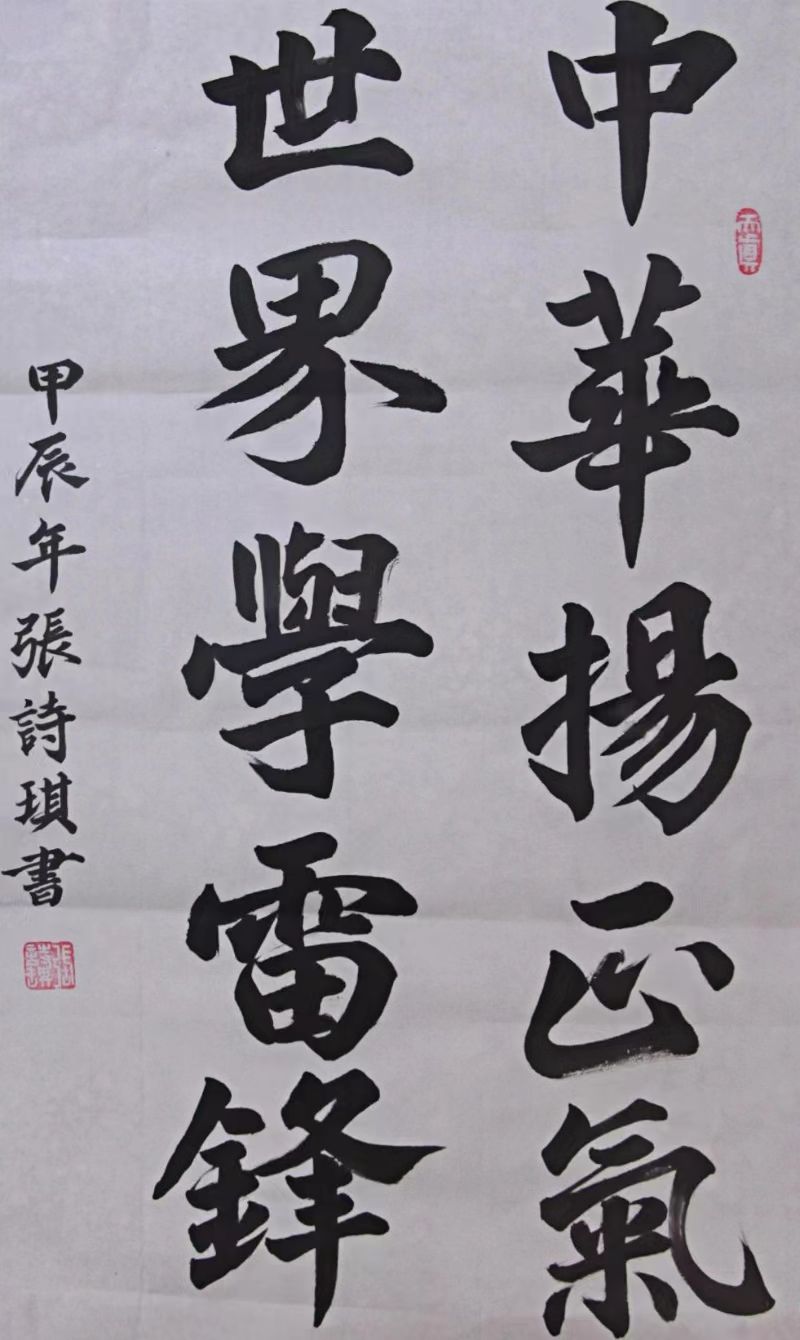 中華揚正氣
世界學雷鋒
甲辰年張詩琪書